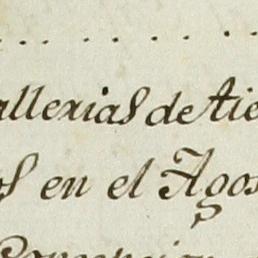 allerias de tie
os en el Agos
Concepcion